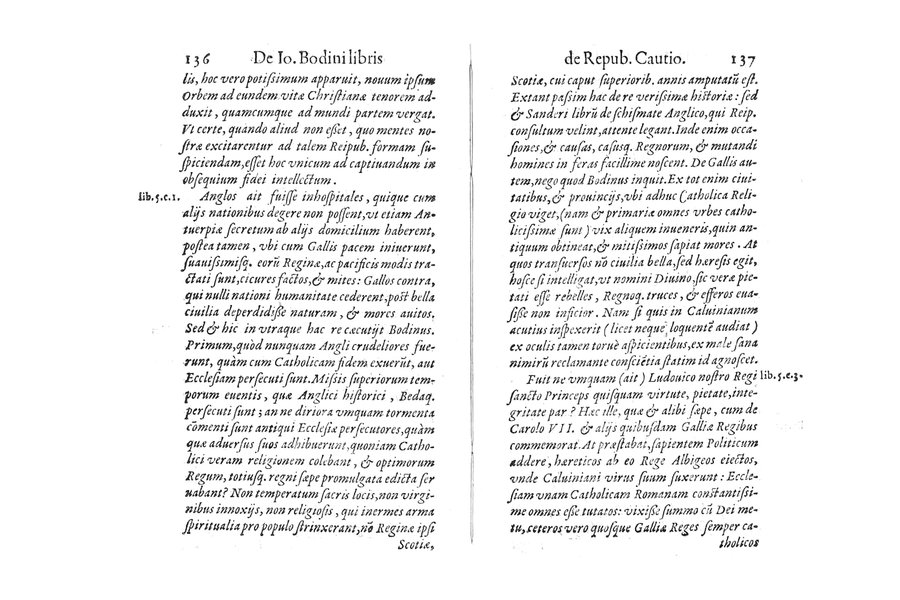 136 De Io. Bodini libris
lis, hoc vero potißimum apparuit, nouum ipsum
Orbem ad eundem vitæ Christianæ tenorem ad-
duxit, quamcumque ad mundi partem vergat.
Vt certe, quando aliud non eßet, quo mentes no-
stræ excitarentur ad talem Reipub. formam su-
spiciendam, esset hoc vnicum ad captiuandum in
obsequium fidei intellectum.
lib.5.c.1.
Anglos ait fuisse inhospitales, quique cum
alijs nationibus degere non possent, vt etiam An-
tuerpiæ secretum ab alijs domicilium haberent,
postea tamen, vbi cum Gallis pacem inierunt,
suauissimisq. eorũ Reginæ, ac pacificis modis tra-
ctati sunt, cicures factos, & mites: Gallos contra,
qui nulli nationi humanitate cederent, post bella
ciuilia deperdidisse naturam, & mores auitos.
Sed & hic in vtraque hac re cæcutijt Bodinus.
Primum, quòd nunquam Angli crudeliores fue-
runt, quàm cum Catholicam fidem exuerũt, aut
Ecclesiam persecuti sunt. Mißis superiorum tem-
porum euentis, quæ Anglici historici, Bedaq.
persecuti sunt; an ne diriora vmquam tormenta
cõmenti sunt antiqui Ecclesiæ persecutores, quàm
quæ aduersus suos adhibuerunt, quoniam Catho-
lici veram religionem colebant, & optimorum
Regum, totiusq. regni sæpe promulgata edicta ser
uabant? Non temperatum sacris locis, non virgi-
nibus innoxijs, non religiosis, qui inermes arma
spiritualia pro populo strinxerant, nõ Reginæ ipsi
Scotiæ,
de Repub. Cautio. 137
Scotiæ, cui caput superiorib. annis amputatũ est.
Extant passim hac de re verissimæ historiæ: sed
& Sanderi librũ de schismate Anglico, qui Reip.
consultum velint, attente legant. Inde enim occa-
siones, & causas, casusq. Regnorum, & mutandi
homines in feras facillime noscent. De Gallis au-
tem, nego quod Bodinus inquit. Ex tot enim ciui-
tatibus, & prouincijs, vbi adhuc Catholica Reli-
gio viget, (nam & primariæ omnes vrbes catho-
licissimæ sunt) vix aliquem inueneris, quin an-
tiquum obtineat, & mitißimos sapiat mores. At
quos transuersos nõ ciuilia bella, sed hæresis egit,
hosce si intelligat, vt nomini Diuino, sic veræ pie-
tati esse rebelles, Regnoq. truces, & efferos eua-
sisse non inficior. Nam si quis in Caluinianum
acutius inspexerit (licet neque loquentẽ audiat)
ex oculis tamen toruè aspicientibus, ex male sana
nimirũ reclamante consciẽtia statim id agnoscet.
Fuit ne vmquam (ait) Ludouico nostro Regi
lib.5.c.3.
sancto Princeps quisquam virtute, pietate, inte-
gritate par? Hæc ille, quæ & alibi sæpe, cum de
Carolo VII. & alijs quibusdam Galliæ Regibus
commemorat. At præstabat, sapientem Politicum
addere, hæreticos ab eo Rege Albigeos eiectos,
vnde Caluiniani virus suum suxerunt: Eccle-
siam vnam Catholicam Romanam constantißi-
me omnes eße tutatos: vixisse summo cũ Dei me-
tu, ceteros vero quosque Galliæ Reges semper ca-
tholicos